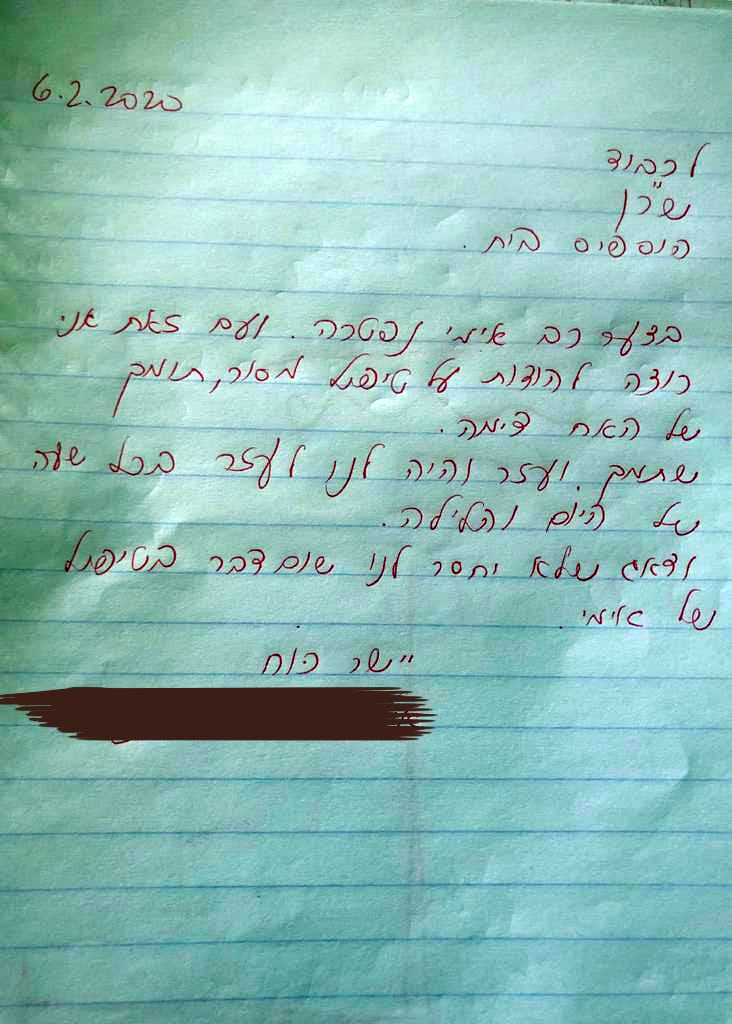 6.2.2020
לכבוד
שר"ן
הוספיס בית.
בצער רב אימי נפטרה. ועם זאת אני
רוצה להודות על טיפול מסור, תומך
של האח דימה.
שתמך ועזר והיה לנו לעזר בכל שעה
של היום והלילה.
ודאג שלא יחסר לנו שום דבר בטיפול
של אימי.
יישר כוח